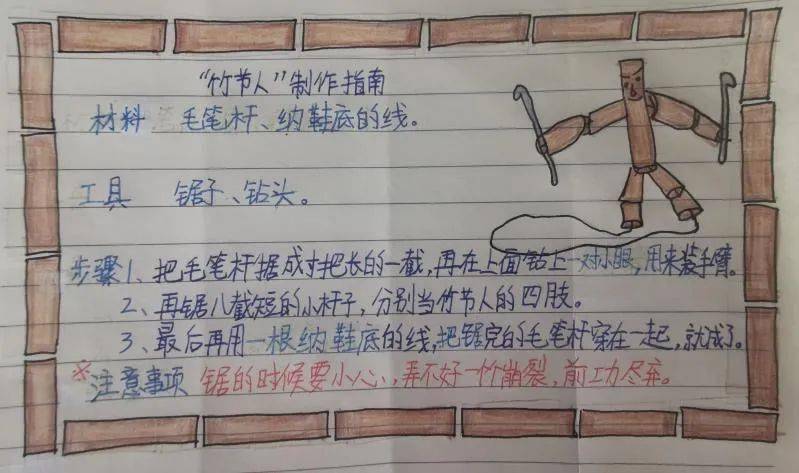 “竹节人”制作指南
材料 毛笔杆、纳鞋底的线。
工具 锯子、钻头。
步骤1、把毛笔杆据成寸把长的一截,再在上面钻上一对小眼,用来装手臂。
2、再锯八截短的小杆子,分别当竹节人的四肢。
3、最后再用一根纳鞋底的线,把锯完的毛笔杆穿在一起,就成了。
※注意事项 锯的时候要小心,弄不好一个崩裂,前功尽弃。